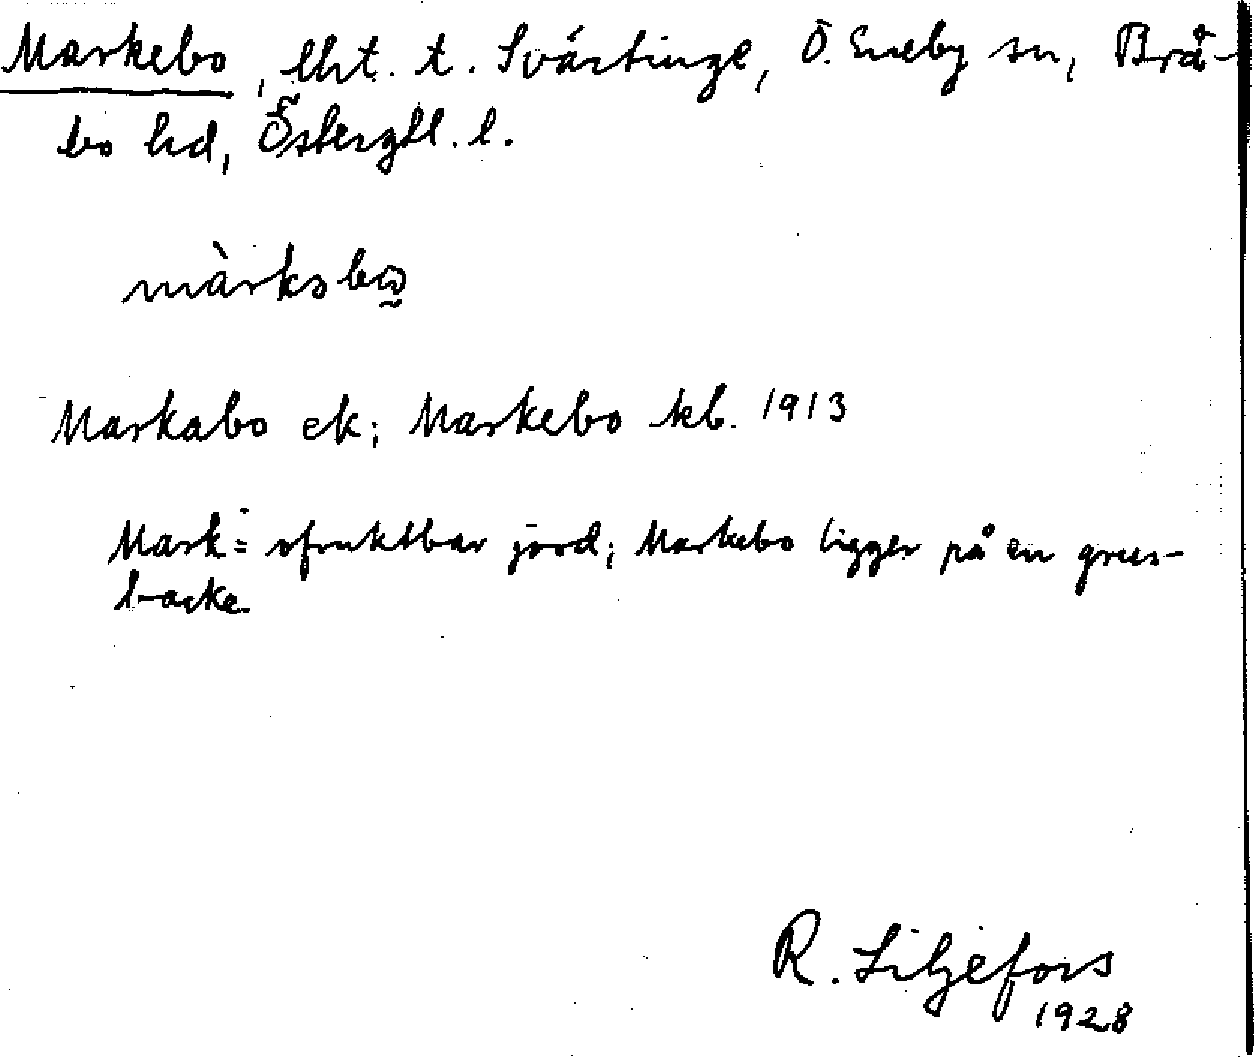 Markebo, lht. t. Svärtinge, Ö. Eneby sn, Brå-
bo hd, Östergtl. l.
màrksbo
Markabo ek; Markebo kb. 1913
Mark = ofruktbar jord; Markebo ligger på en grus-
backe.
R. Liljefors
1928